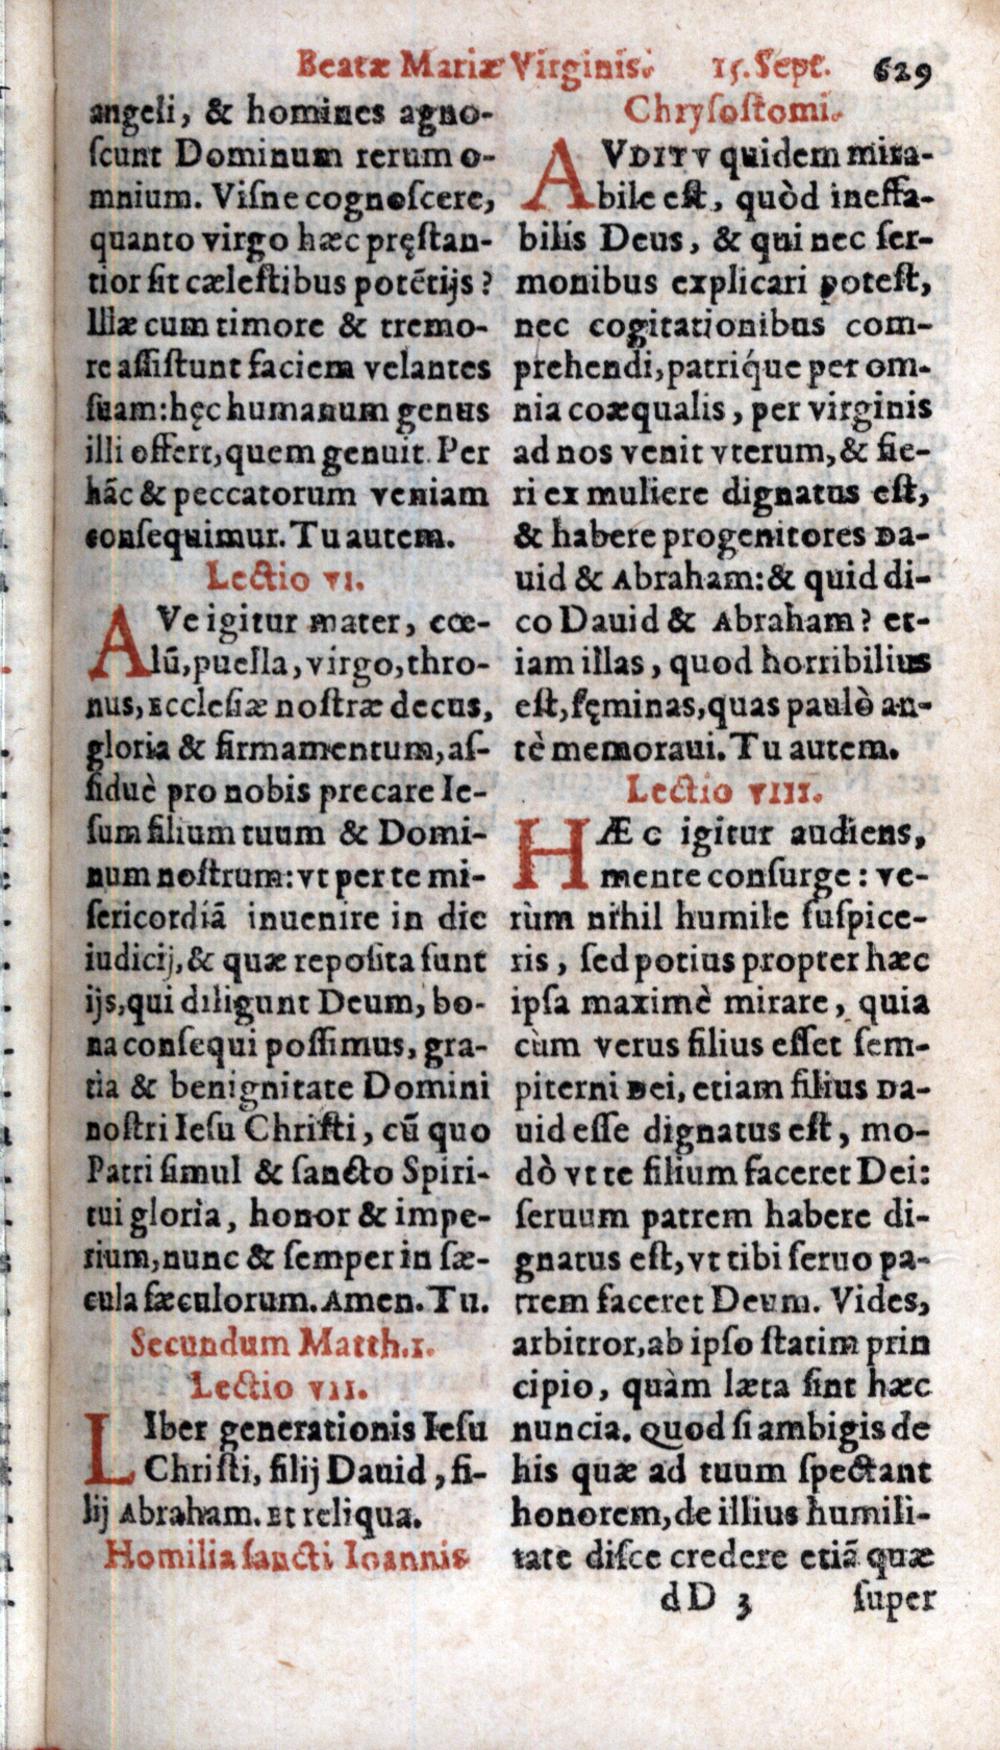 Beatæ Mariæ Virginis. 15. Sept. 629
angeli, & homines agno-
ſcunt Dominum rerum o-
mnium. Viſne cognoſcere,
quanto virgo hæc pręſtan-
tior ſit cæleſtibus potētijs?
Illæ cum timore & tremo-
re aſſiſtunt faciem velantes
ſuam: hęc humanum genus
illi offert, quem genuit. Per
hāc & peccatorum veniam
conſequimur. Tu autem.
Lectio VI.
AVe igitur mater, cœ-
lū, puella, virgo, thro-
nus, Eccleſiæ noſtræ decus,
gloria & firmamentum, aſ-
ſiduè pro nobis precare Ie-
ſum filium tuum & Domi-
num noſtrum: vt per te mi-
ſericordiā inuenire in die
iudicij, & quæ repoſita ſunt
ijs, qui diligunt Deum, bo-
na conſequi poſſimus, gra-
tia & benignitate Domini
noſtri Ieſu Chriſti, cū quo
Patri ſimul & ſancto Spiri-
tui gloria, honor & impe-
rium, nunc & ſemper in ſæ-
cula ſæculorum. Amen. Tu.
Secundum Matth. 1.
Lectio VII.
LIber generationis Ieſu
Chriſti, filij Dauid, fi-
lij Abraham. Et reliqua.
Homilia ſancti Ioannis
Chryſoſtomi.
AVDITV quidem mira-
bile eſt, quòd ineffa-
bilis Deus, & qui nec ſer-
monibus explicari poteſt,
nec cogitationibus com-
prehendi, patriq́ue per om-
nia coæqualis, per virginis
ad nos venit vterum, & fie-
ri ex muliere dignatus eſt,
& habere progenitores Da-
uid & Abraham: & quid di-
co Dauid & Abraham? et-
iam illas, quod horribilius
eſt, fęminas, quas paulò an-
tè memoraui. Tu autem.
Lectio VIII.
HÆC igitur audiens,
mente conſurge: ve-
rùm nihil humile ſuſpice-
ris, ſed potius propter hæc
ipſa maximè mirare, quia
cùm verus filius eſſet ſem-
piterni Dei, etiam filius Da-
uid eſſe dignatus eſt, mo-
dò vt te filium faceret Dei:
ſeruum patrem habere di-
gnatus eſt, vt tibi ſeruo pa-
trem faceret Deum. Vides,
arbitror, ab ipſo ſtatim prin
cipio, quàm læta ſint hæc
nuncia. Quod ſi ambigis de
his quæ ad tuum ſpectant
honorem, de illius humili-
tate diſce credere etiā quæ
dD 3 ſuper